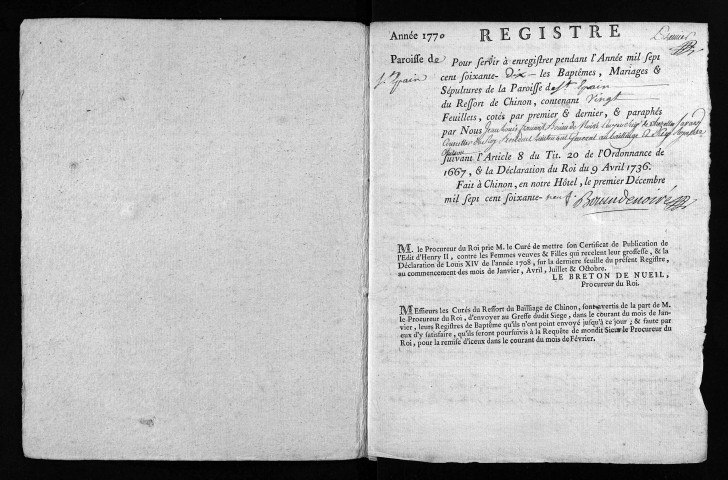 Année 1770 REGISTRE
Paroisse de
St Epain
Pour servir à enregistrer pendant l'Année mil sept
cent soixante-dix-les Baptêmes, Mariages &
Sépultures de la Paroisse de St Epain
du Ressort de Chinon, contenant vingt
Feuillets, cotés par premier & dernier, & paraphés
par Nous Jean Louis
Conseiller du Roy Lieutenant General au
Chinon
suivant l'Article 8 du Tit. 20 de l'Ordonnance de
1667, & la Déclaration du Roi du 9 Avril 1736:
Fait à Chinon, en notre Hôtel, le premier Décembre
mil sept cent soixante-neuf.
M. le Procureur du Roi prie M. le Curé de mettre son Certificat de Publication de
l'Edit d'Henry II, contre les Femmes veuves & Filles qui recelent leur grossesse, & la
Déclaration de Louis XIV de l'année 1708, sur la derniere feuille du présent Registre,
au commencement des mois de Janvier, Avril, Juillet & Octobre.
LE BRETON DE NUEIL,
Procureur du Roi.
MEssieurs les Curés du Ressort du Bailliage de Chinon, sont avertis de la part de M.
le Procureur du Roi, d'envoyer au Greffe dudit Siege, dans le courant du mois de Jan-
vier, leurs Registres de Baptême qu'ils n'ont point envoyé jusqu'à ce jour; & faute par
eux d'y satisfaire, qu'ils seront poursuivis à la Requête de mondit Sieur le Procureur du
Roi, pour la remise d'iceux dans le courant du mois de Février.